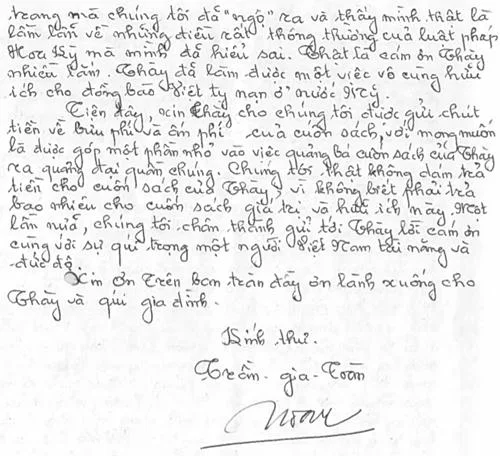 trang mà chúng tôi đã "ngộ" ra và thấy mình thật là
lầm lẫn về những điều rất thông thường của luật pháp
Hoa Kỳ mà mình đã hiểu sai. Thật là cám ơn Thầy
nhiều lắm. Thầy đã làm được một việc vô cùng hữu
ích cho đồng bào Việt tỵ nạn ở nước Mỹ.
Tiện đây, xin Thầy cho chúng tôi được gửi chút
tiền về bưu phí và ấn phí của cuốn sách, với mong muốn
là được góp một phần nhỏ vào việc quảng bá cuốn sách của Thầy
ra quảng đại quần chúng. Chúng tôi thật không dám trả
tiền cho cuốn sách của Thầy, vì không biết phải trả
bao nhiêu cho cuốn sách giá trị và hữu ích này. Một
lần nữa, chúng tôi chân thành gửi tới Thầy lời cám ơn
cùng với sự quí trọng một người Việt Nam tài năng và
đức độ.
Xin Ơn Trên ban tràn đầy ơn lành xuống cho
Thầy và quí gia đình.
Kính thư.
Trần - gia - Toàn